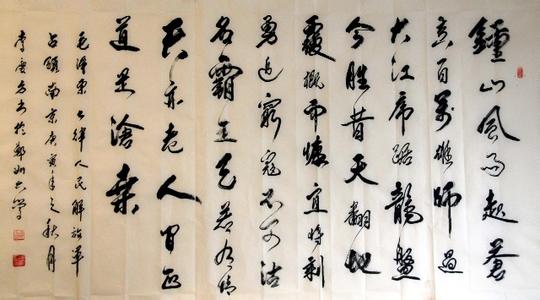 鍾山風雨起蒼
黄百萬雄師過
大江虎踞龍盤
今勝昔天翻地
覆慨而慷宜將剩
勇追窮寇不可沽
名霸王天若有情
天亦老人間正
道是滄桑
毛澤東七律人民解放軍
占領南京庚寅年之秋月
李書於鄭州大學